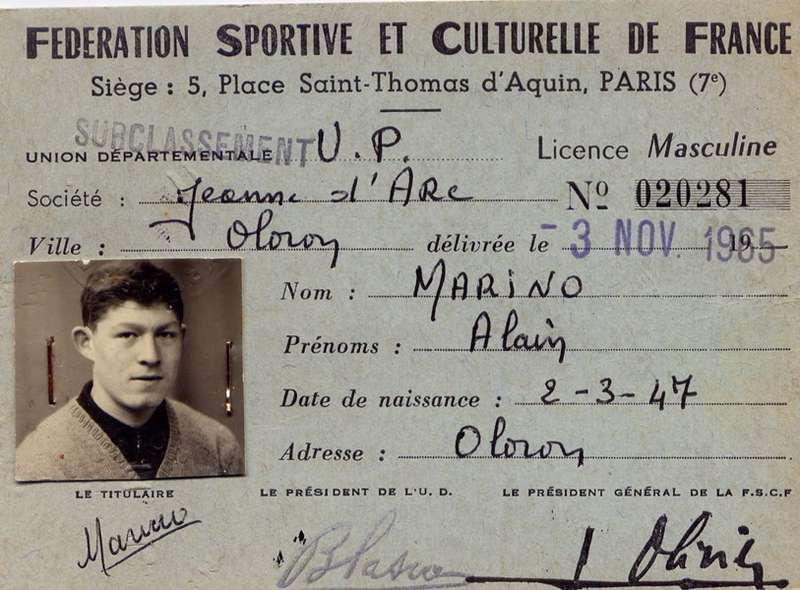 FEDERATION SPORTIVE ET CULTURELLE DE FRANCE
Siège : 5, Place Saint-Thomas d'Aquin, PARIS (7e)
SUBCLASSEMENT
UNION DÉPARTEMENTALE U.P. Licence Masculine
Société : Jeanne d'Arc No 020281
Ville : Oloron délivrée le - 3 NOV. 1965 19
Nom : MARINO
Prénoms : Alain
Date de naissance : 2-3-47
Adresse : Oloron
LE TITULAIRE LE PRÉSIDENT DE L'U. D. LE PRÉSIDENT GÉNÉRAL DE LA F.S.C.F
Marino